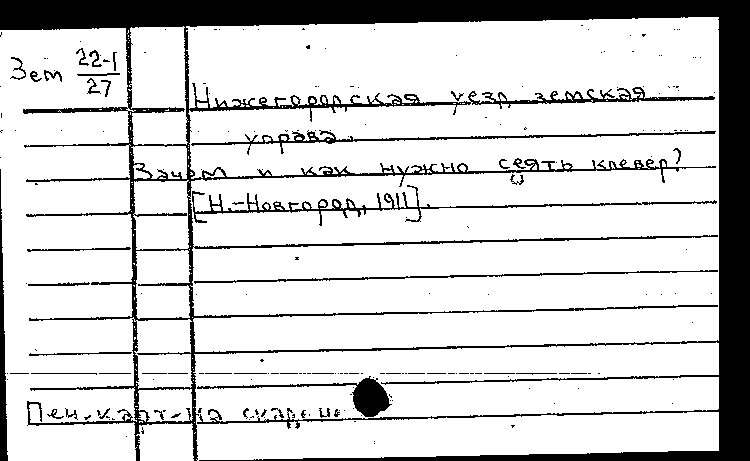 Зем 22-1/27
Нижегородская уезд. земская
управа.
Зачем и как нужно сеять клевер?
[Н.-Новгород, 1911].
Печ. карт-ка